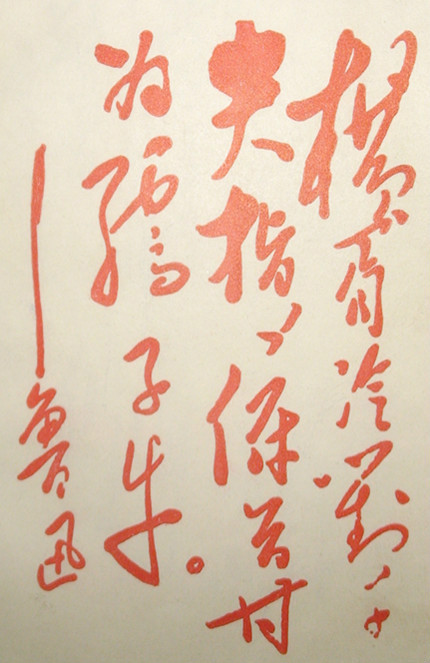 横眉冷對千
夫指、俯首甘
为孺子牛。
——鲁迅